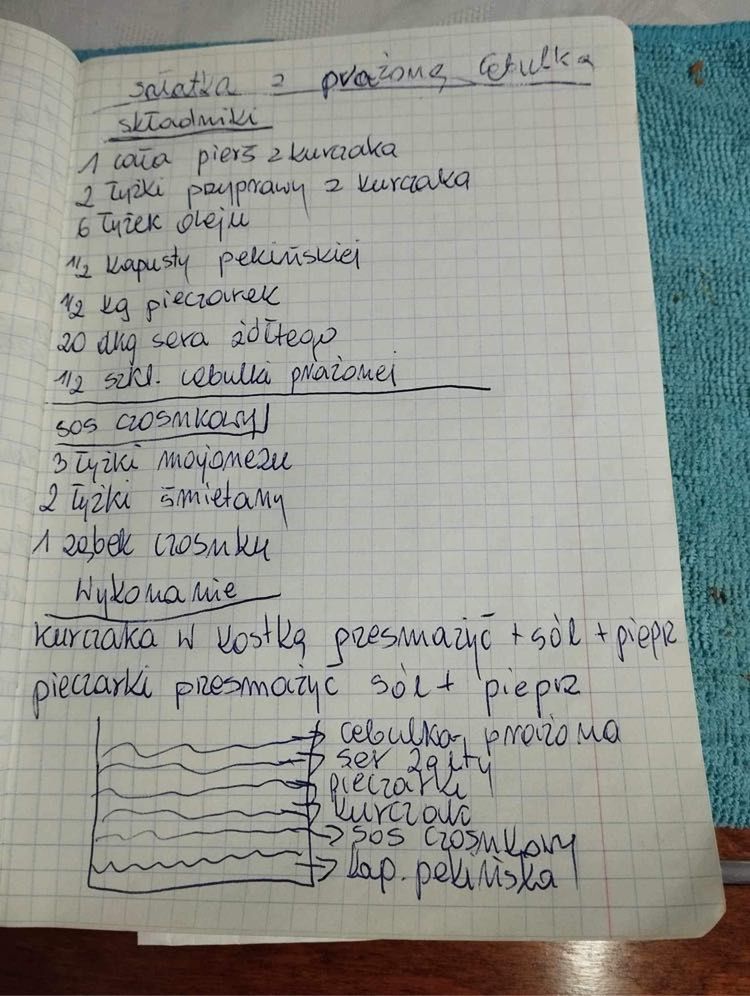 sałatka z prażoną cebulką
składniki
1 cała pierś z kurczaka
2 łyżki przyprawy z kurczaka
6 łyżek oleju
1/2 kapusty pekińskiej
1/2 kg pieczarek
20 dkg sera żółtego
1/2 szkl. cebulki prażonej
sos czosnkowy
3 łyżki majonezu
2 łyżki śmietany
1 ząbek czosnku
Wykonanie
kurczaka w kostkę przesmażyć + sól + pieprz
pieczarki przesmażyć sól + pieprz
cebulka prażona
ser żółty
pieczarki
kurczak
sos czosnkowy
kap. pekińska